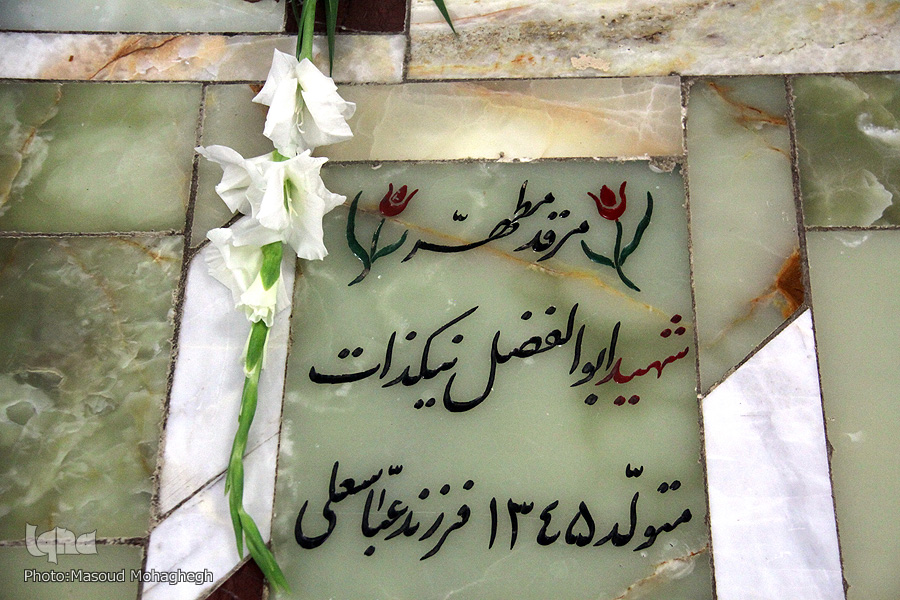 مرقد مطهّر
شهید ابوالفضل نیکذات
متولّد ۱۳۴۵ فرزند عبّاسعلی
iqna
Photo:Masoud Mohaghegh